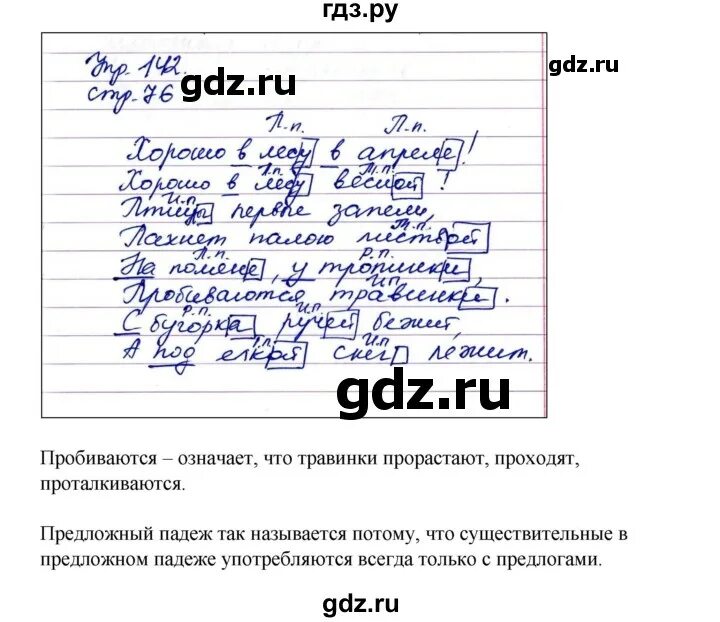 гдз.ру
Упр. 142.
стр. 76
gdz.ru
gdz.ru
П.п. П.п.
Хорошо в лесу в апреле!
П.п. Т.п.
Хорошо в лесу весной!
И.п.
Птицы первые запели,
Т.п.
Пахнет палою листвой
П.п. Р.п.
На поляне, у тропинки,
И.п.
Пробиваются травинки.
Р.п. И.п.
С бугорка ручей бежит,
Т.п. И.п.
А под елкой снег лежит.
gdz.ru
Пробиваются – означает, что травинки прорастают, проходят,
проталкиваются.
Предложный падеж так называется потому, что существительные в
предложном падеже употребляются всегда только с предлогами.
gdz.ru